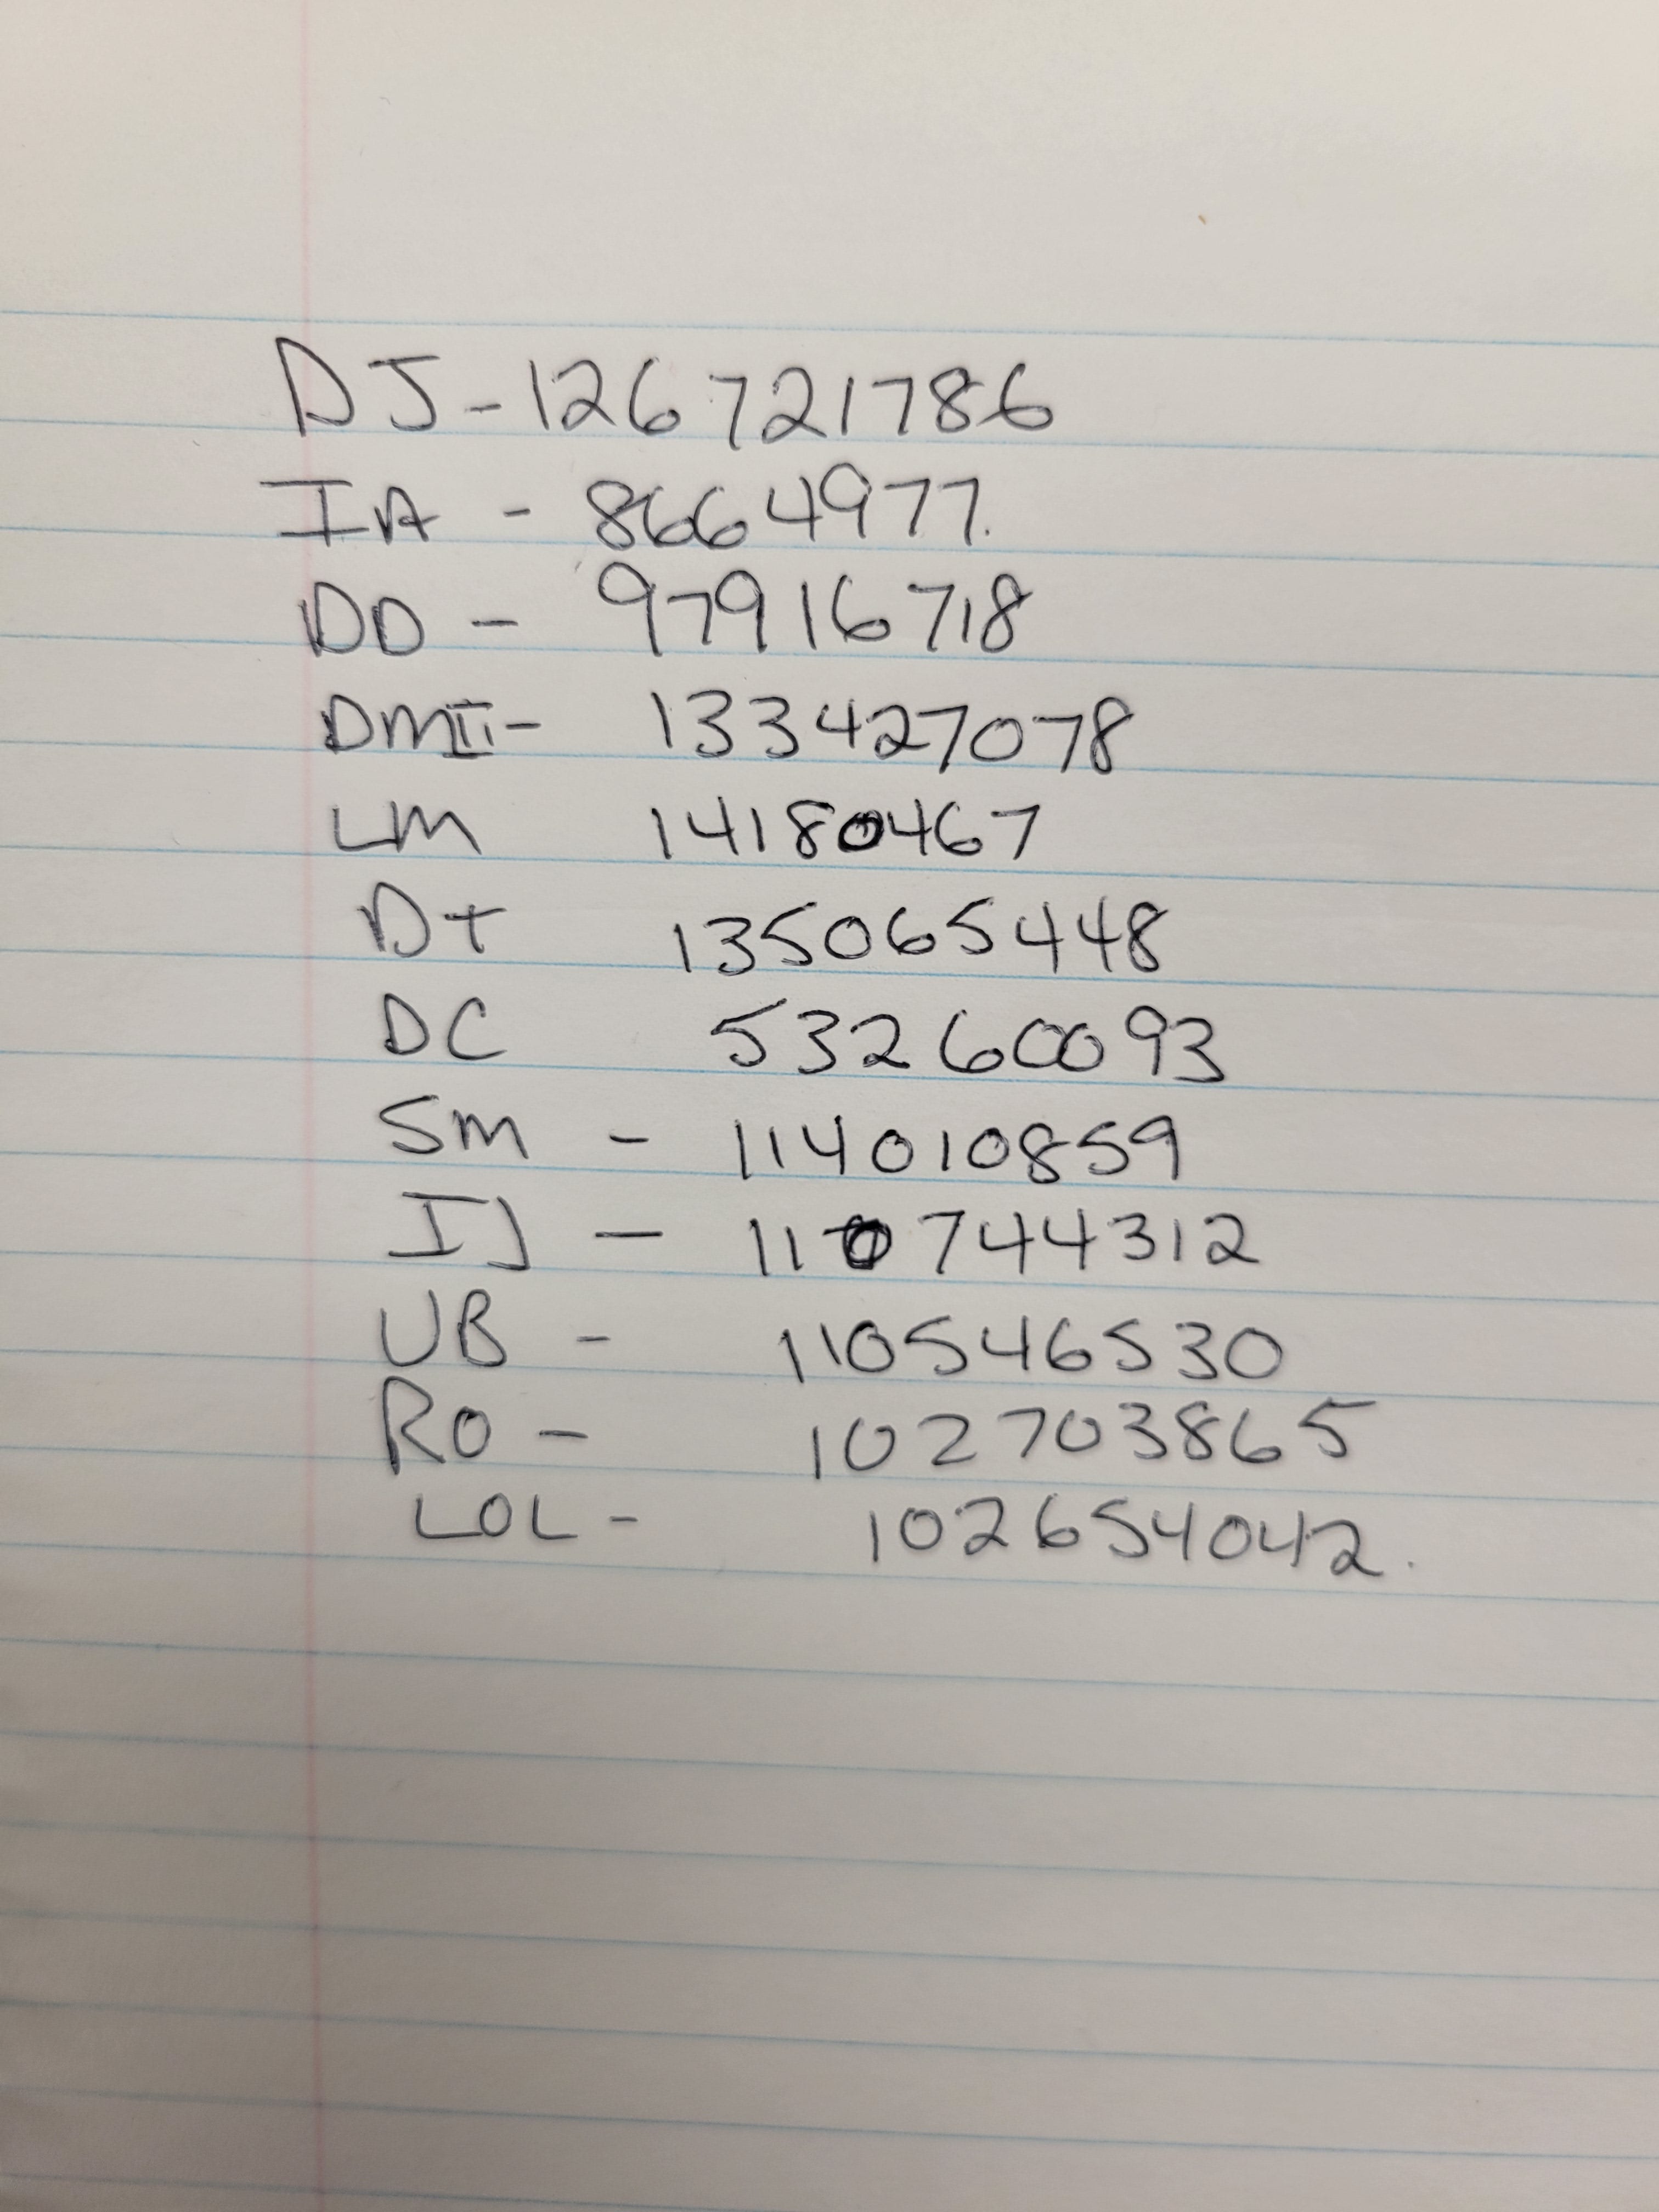 DJ - 126721786
IA - 8664977.
DD - 97916718
DMII - 133427078
LM 14180467
DT 135065448
DC 53260093
SM - 114010859
IJ - 110744312
UB - 110546530
RO - 102703865
LOL - 102654042.